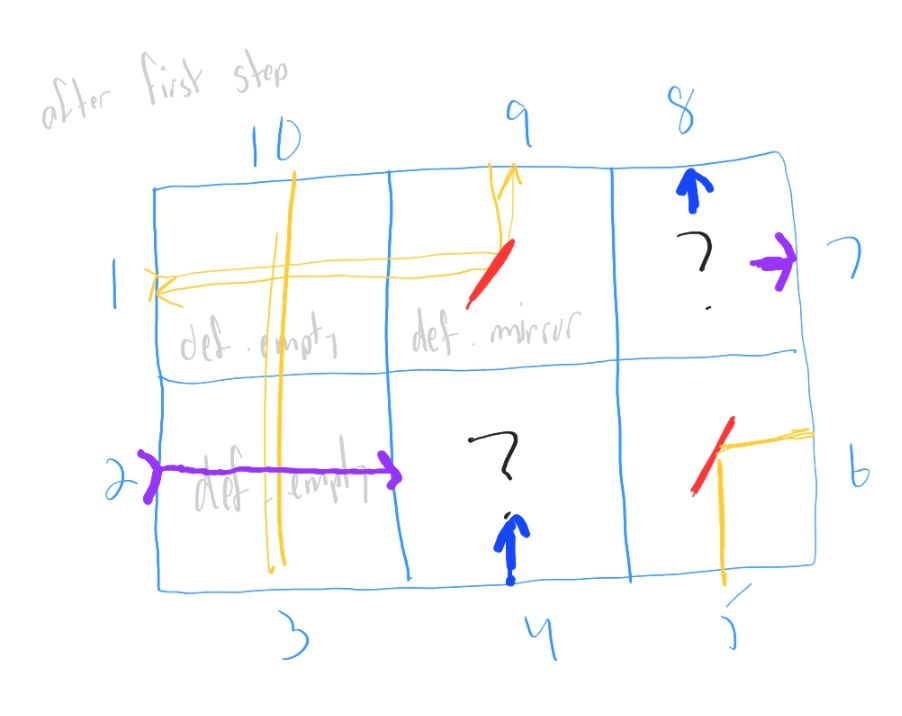 after first step
10 9 8
1 ? 7
def.empty def.mirror
2 def.empty ? 6
3 4 5